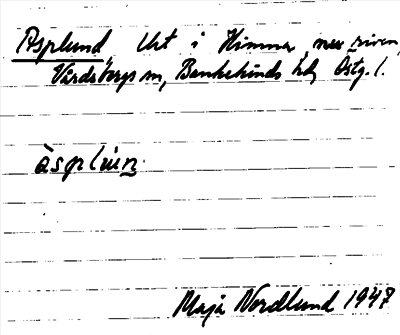 Asplund Urt i Himna, nu riven,
Vårdsbergs sn, Bankekinds hd, Östg. l.
àsplùn
Maja Nordlund 1947